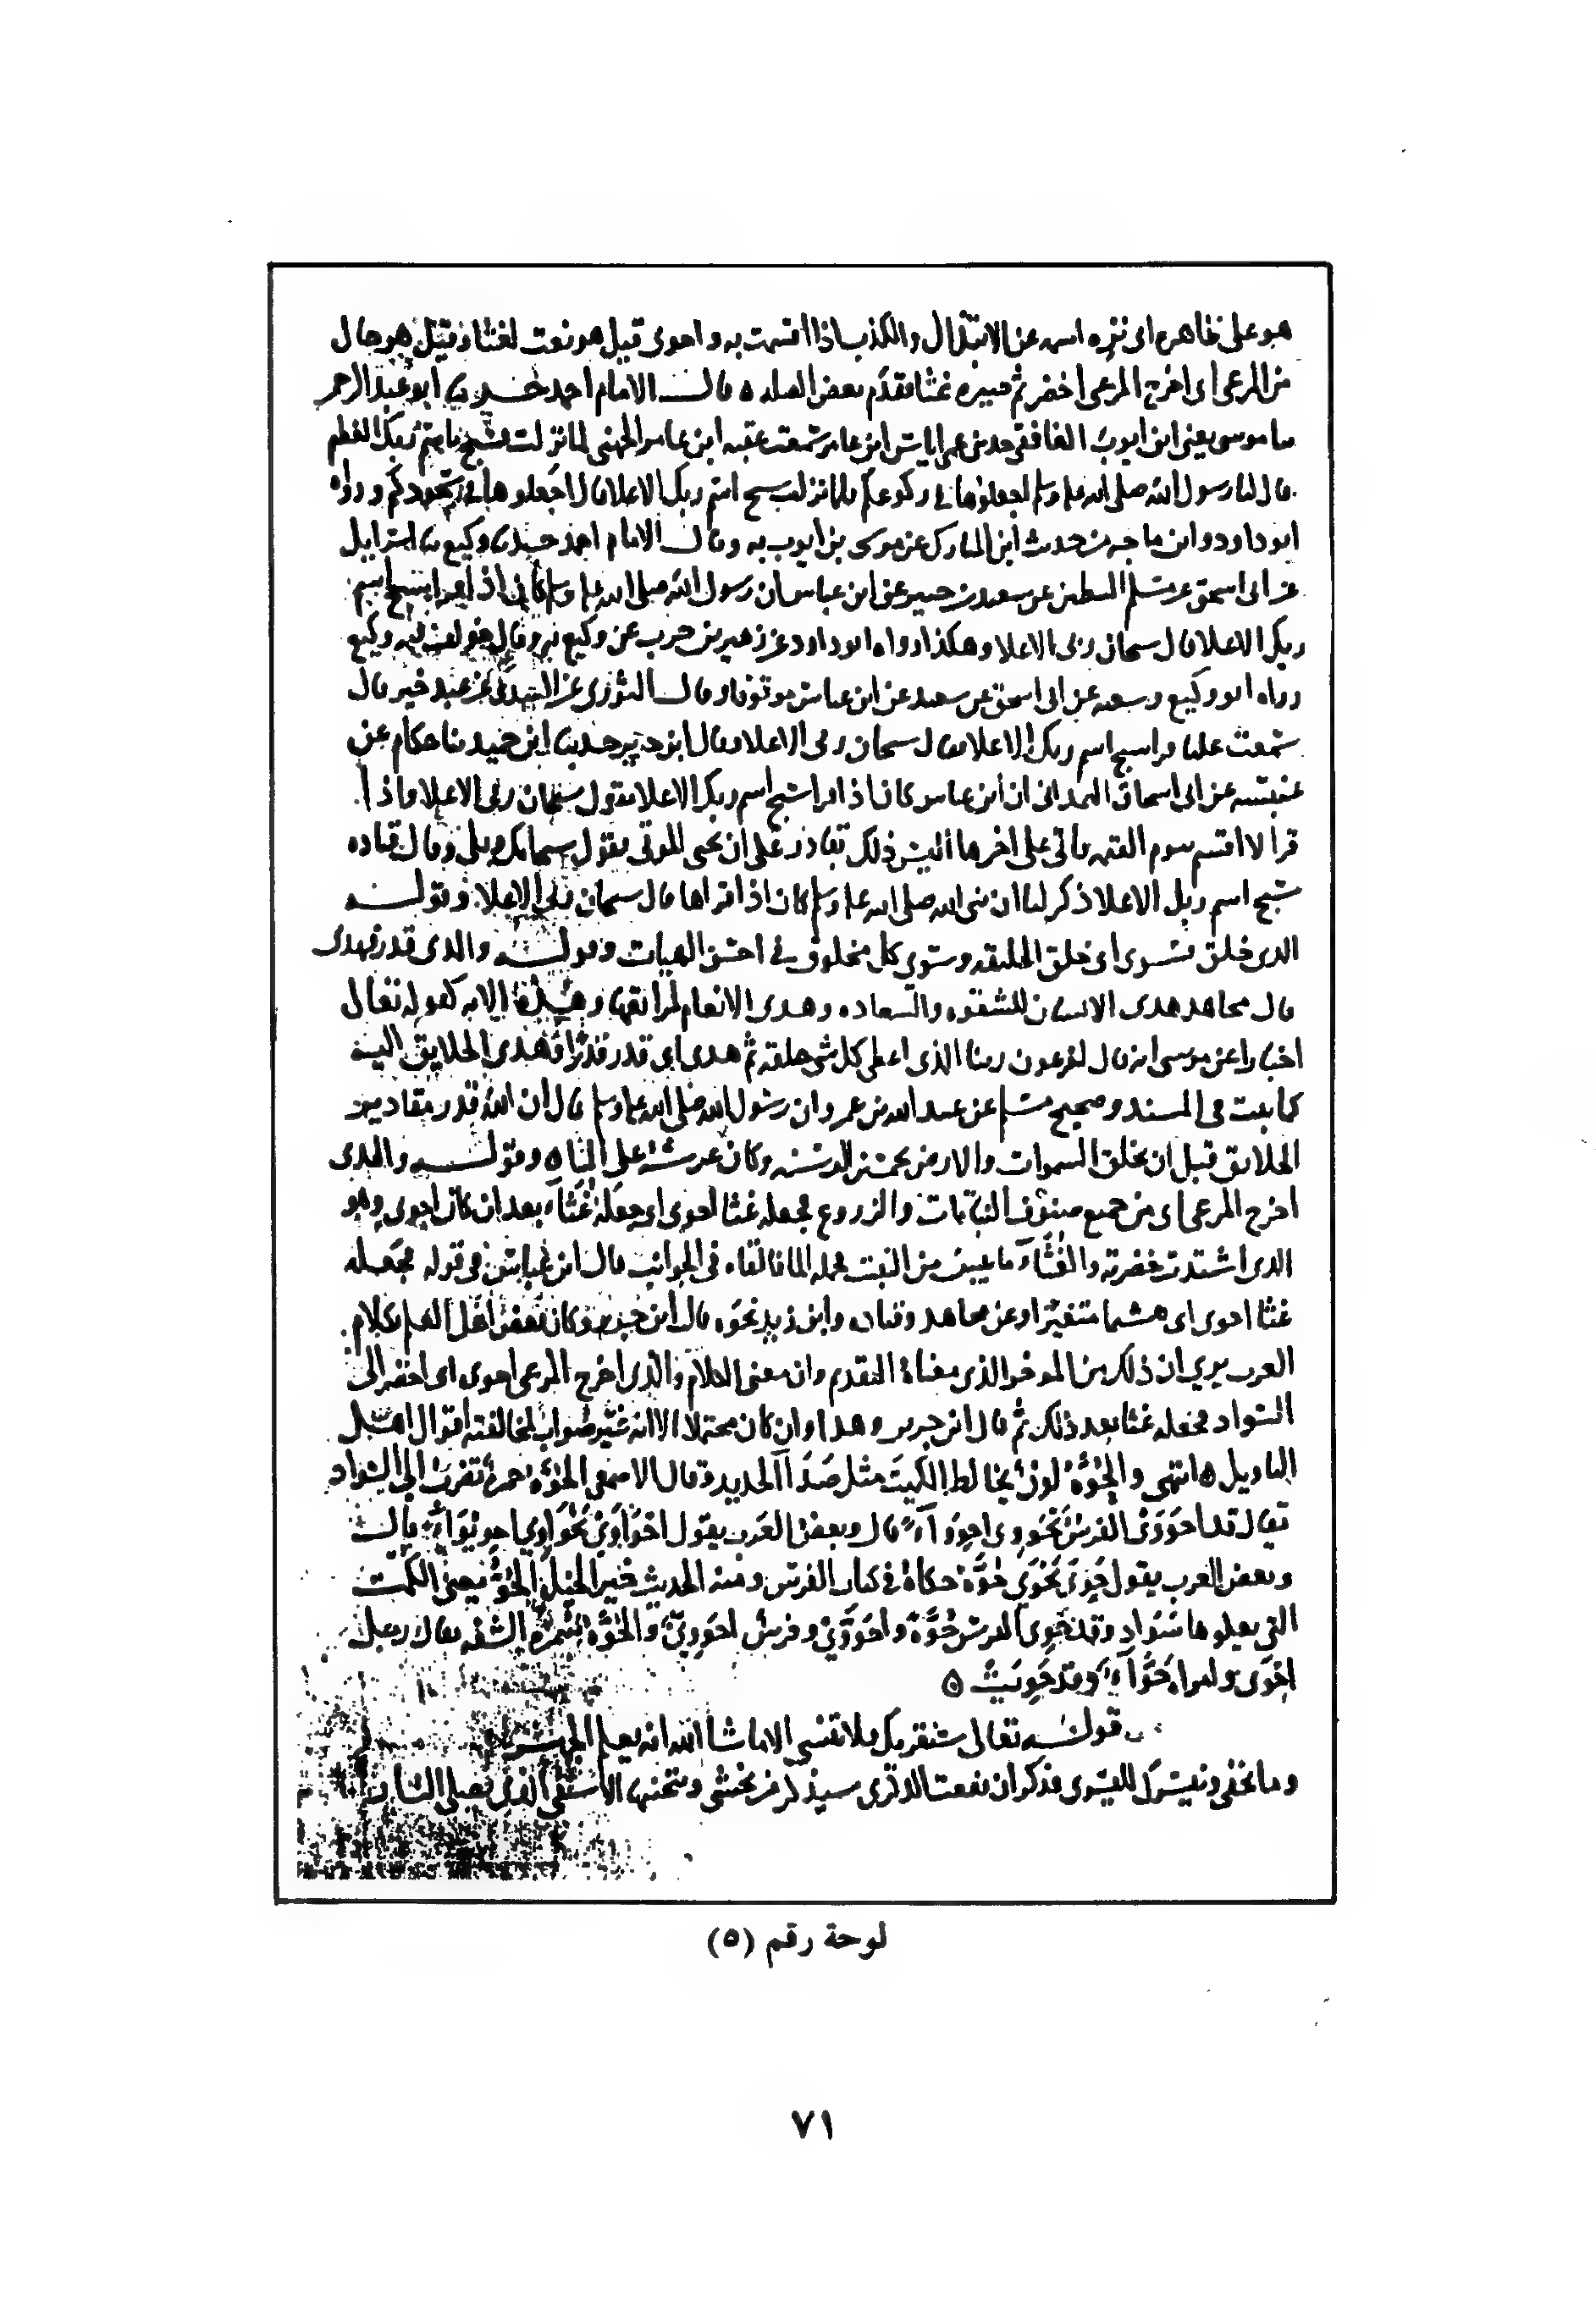 هو على ظاهره اى نزه اسمه عن الابتذال والكذب اذا اقسمت به واحوى قيل هو نعت لغثا وقيل هو حال
من المرعى اى اخرج المرعى اخضر ثم صيره غثا فقدم بعض الصله ه قال الامام احمد حدثنا ابو عبد الرحمن
سا موسى يعنى ابن ايوب الغافقى حدثنى عمى اياس ابن عامر سمعت عقبه ابن عامر الجهنى لما نزلت فسبح باسم ربك العظيم
قال لنا رسول الله صلى الله عليه وسلم اجعلوها فى ركوعكم فلما نزلت سبح اسم ربك الاعلا قال اجعلوها فى سجودكم ورواه
ابو داود وابن ماجه من حديث ابن المبارك عن موسى بن ايوب به وقال الامام احمد حدثنا وكيع ثنا اسرايل
عن ابى اسحق عن مسلم البطين عن سعيد بن جبير عن ابن عباس ان رسول الله صلى الله عليه وسلم كان اذا قرا سبح اسم
ربك الاعلا قال سبحان ربى الاعلا وهكذا رواه ابو داود عن زهير بن حرب عن وكيع به وقال خولف فيه وكيع
رواه ابو وكيع وشعبه عن ابى اسحق عن سعيد عن ابن عباس موقوفا وقال الثورى عن السدى عن عبد خير قال
سمعت عليا قرا سبح اسم ربك الاعلا فقال سبحان ربى الاعلا وقال ابن جرير حدثنا ابن حميد ثنا حكام عن
عنبسه عن ابى اسحاق الهمدانى ان ابن عباس كان اذا قرا سبح اسم ربك الاعلا يقول سبحان ربى الاعلا واذا
قرا لا اقسم بيوم القيمه فاتى على اخرها اليس ذلك بقادر على ان يحيى الموتى يقول سبحانك وبلى وقال قتاده
سبح اسم ربك الاعلا ذكر لنا ان نبى الله صلى الله عليه وسلم كان اذا قراها قال سبحان ربى الاعلا وقوله
الذى خلق فسوى اى خلق الخليقه وسوى كل مخلوق فى احسن الهيات وقوله والذى قدر فهدى
قال مجاهد هدى الانسان للشقوه والسعاده وهدى الانعام لمراتعها وهذه الايه كقوله تعالى
اخبارا عن موسى انه قال لفرعون ربنا الذى اعطى كل شى خلقه ثم هدى اى قدر قدرا وهدى الخلايق اليه
كما ثبت فى المسند وصحيح مسلم عن عبد الله بن عمرو ان رسول الله صلى الله عليه وسلم قال ان الله قدر مقادير
الخلايق قبل ان يخلق السموات والارض بخمسين الف سنه وكان عرشه على الما ه وقوله والذى
اخرج المرعى اى من جميع صنوف النباتات والزروع فجعله غثا احوى اى جعله غثاء بعد ان كان احوى وهو
الذى اشتدت خضرته والغثاء ما يبس من النبت فحمله الما فالقاه فى الجوانب قال ابن عباس فى قوله فجعله
غثا احوى اى هشيما متغيرا وعن مجاهد وقتاده وابن زيد نحوه قال ابن جرير وكان بعض اهل العلم بكلام
العرب يرى ان ذلك من الموخر الذى معناه التقديم وان معنى الكلام والذى اخرج المرعى احوى اى اخضر الى
السواد فجعله غثا بعد ذلك ثم قال ابن جرير وهذا وان كان محتملا الا انه غير صواب لمخالفته اقوال اهل
التاويل ه انتهى والحُوَّةُ لون يخالط الكميت مثل صدأ الحديد وقال الاصمعى الحوة حمرة تضرب الى السواد
يقال قد احووى الفرس يحووى احوواء قال وبعض العرب يقول احواوى يحواوى احويواء قال
وبعض العرب يقول حوى يحوى حوة حكاه فى كتاب الفرس ومنه الحديث خير الخيل الحو يعنى الكمت
التى يعلوها سواد وقد حوى الفرس حوة واحووى وفرس احووى والحوة سمرة الشفه يقال رجل
احوى وامراه حواء وقد حويت ه
قوله تعالى سنقريك فلا تنسى الا ما شا الله انه يعلم الجهر
وما يخفى ونيسرك لليسرى فذكر ان نفعت الذكرى سيذكر من يخشى ويتجنبها الاشقى الذى يصلى النار
لوحة رقم (٥)
٧١